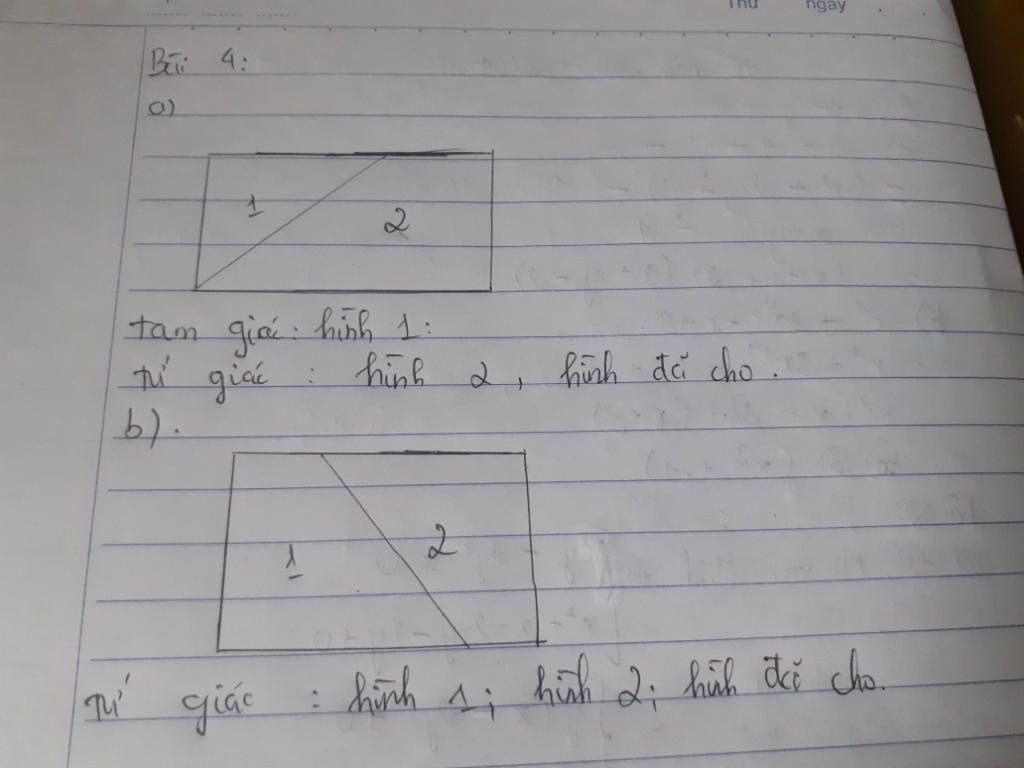 Thứ ngày
Bài 4:
a)
1
2
tam giác: hình 1:
tứ giác : hình 2, hình đã cho.
b).
1
2
tứ giác : hình 1; hình 2; hình đã cho.